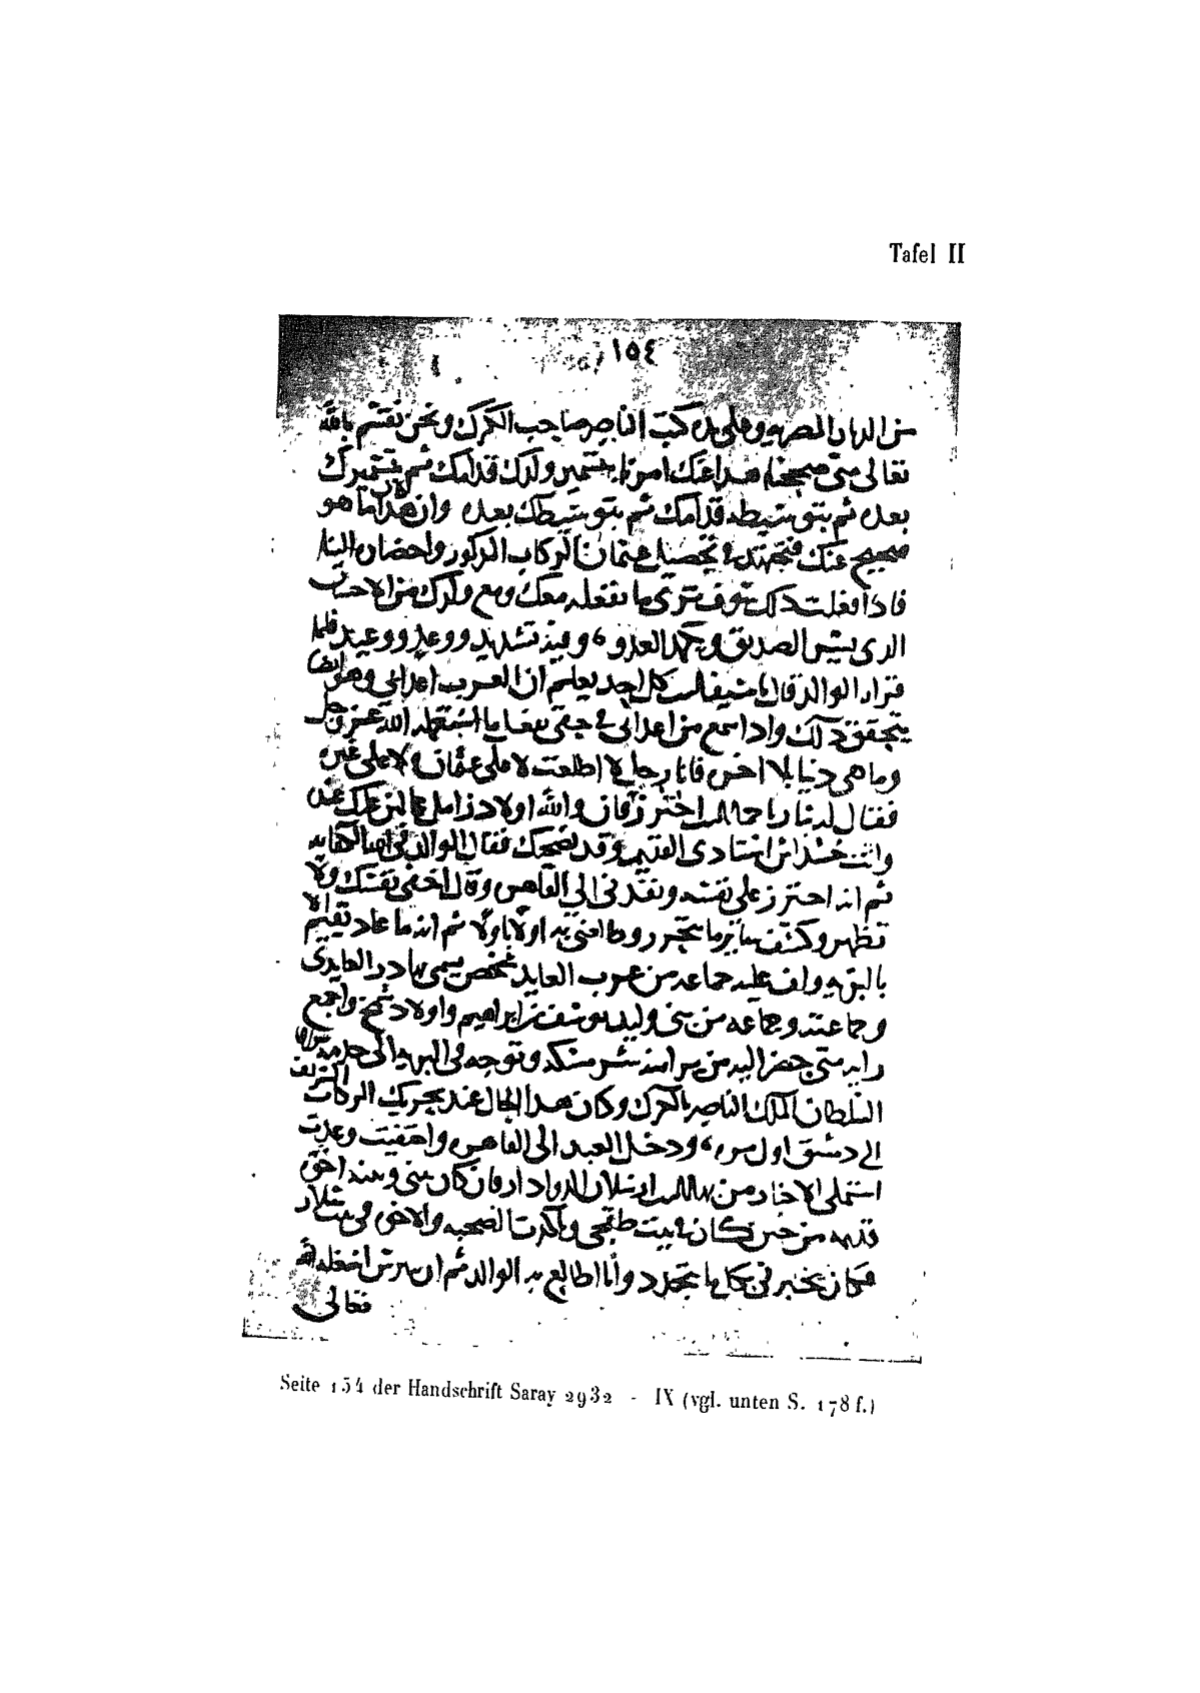 Tafel II
١٥٤
من الديار المصريه وعلى يده كتب الناصر صاحب الكرك ونحن نقسم بالله
تعالى متى صح هدا عنك امرنا بتسمير ولدك قدامك ثم بتسميرك
بعده ثم بتوسيطه قدامك ثم بتوسيطك بعده وان كان هدا ما هو
صحيح عنك فتجتهد في تحصيل عثمان الركاب المدكور واحضاره الينا
فادا فعلت دلك سوف ترى ما نفعله معك ومع ولدك من الاحسان
الدى يسر الصديق ويكمد العدو، وفيه تشديد ووعد ووعيد فلما
قراه الوالد قال يا كل احد يعلم ان العرب اعداى وهو ايضا
يتحقق دلك وادا سمع من اعداى في حقى بقايا استعمله الله عز وجل
وما هى دنيا بلا اخره فانا رجل لا اطلعت لا على عثمان ولا على غيره
فقال له يا جمال الدين احترز فان والله اولاد زامل عالين عليك عنده
وانت خشداش استادى القديم وقد نصحتك فقال الوالد في الله الكفايه
ثم انه احترز على نفسه ونفدنى الى القاهره وقال اخفى نفسك ولا
تظهر وكشف ساير ما يتجرر وطالعنى به اولا باولا ثم انه ما عاد يقيم الا
بالبريه ولف عليه جماعه من عرب العايد شخص يسمى بهادر العايدى
وجماعته وجماعه من بنى وليد يوسف بن ابراهيم واولاد شمخ واجمع
رايه متى حضر اليه من يرامنه شر مسكه وتوجه في البريه الى خدمة مولانا
السلطان الملك الناصر بالكرك وكان هدا الحال عند تحريك الركاب الشريف
الى دمشق اول مره، ودخل العبد الى القاهره واختفيت وعدت
استملى الاخبار من بهاالدين ارسلان الدوادار فان كان بينى وبينه اخوه
قديمه من حين كان في بيت طقجى وتاكدت الصحبه والاخوه في بيت سلار
فكان يخبرنى بكل ما يتجدد وانا اطالع به الوالد ثم ان بيبرس اشغله الله
تعالى
Seite 154 der Handschrift Saray 2932 - IX (vgl. unten S. 178 f.)